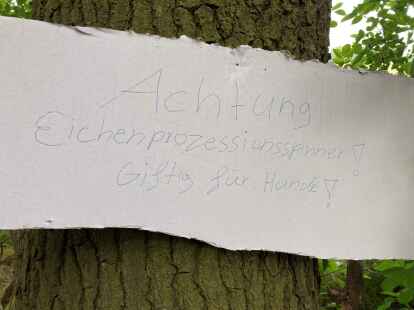 Achtung
Eichenprozessionsspinner!
Giftig für Hunde!